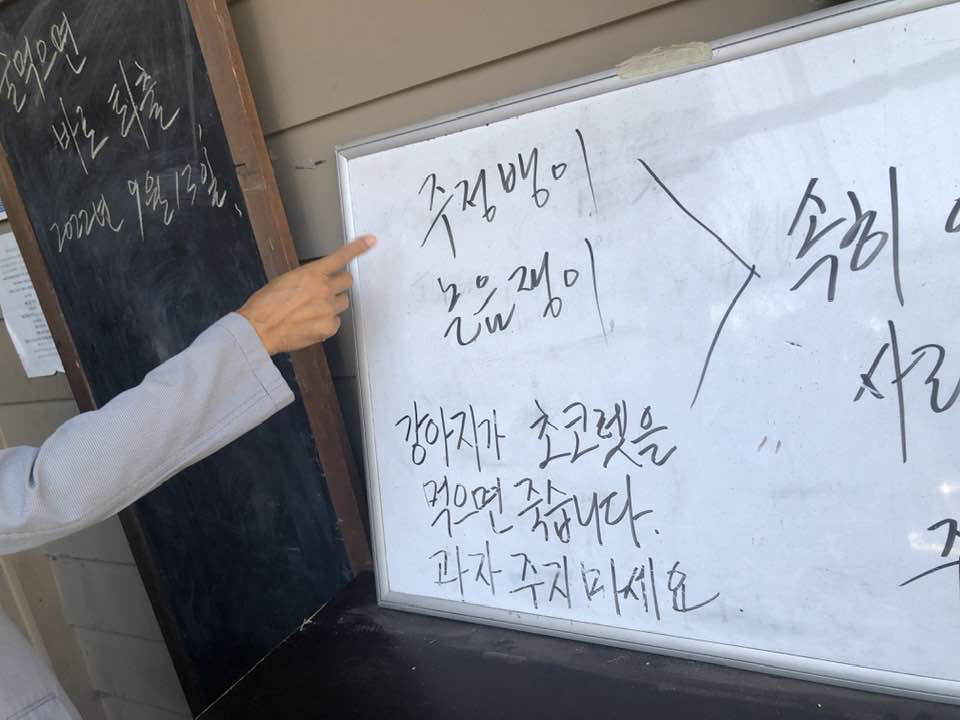 술먹으면
바로 퇴출
2022년 9월 13일,
주정뱅이
논음쟁이
속히
강아지가 초코렛을
먹으면 죽습니다.
과자 주지마세요